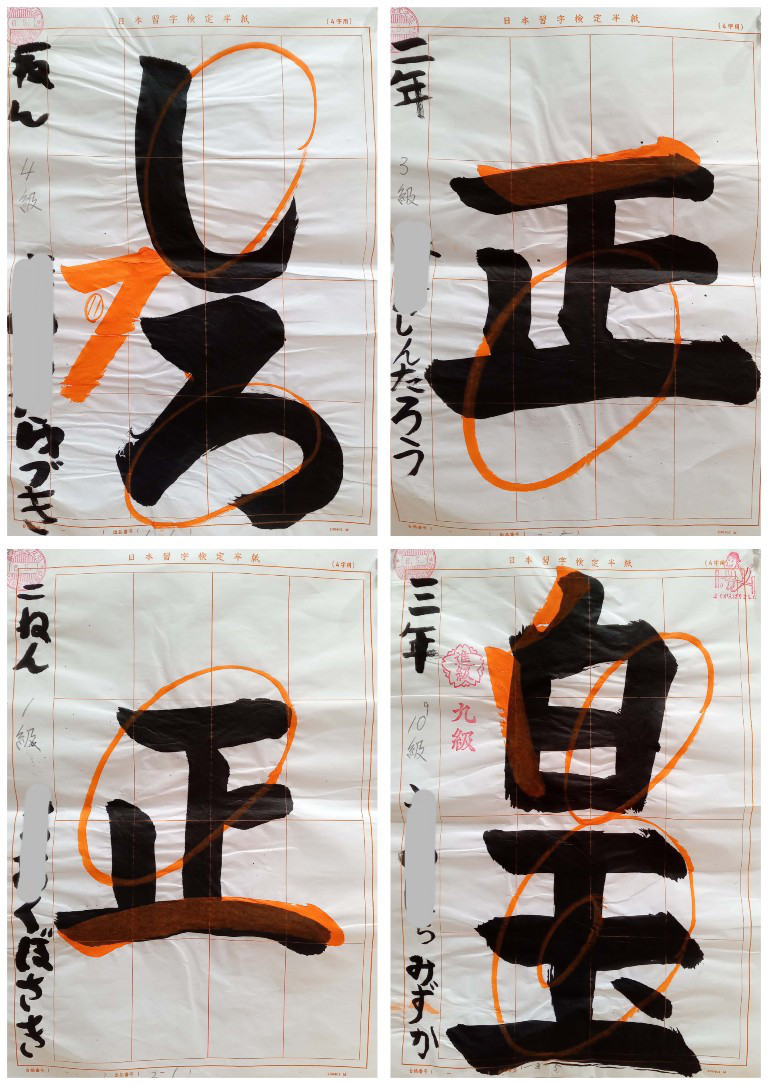 日本習字検定半紙
(4字用)
一ねん
4級
づき
しろ
日本習字検定半紙
(4字用)
二年
3級
しんたろう
正
日本習字検定半紙
(4字用)
二ねん
1級
くぼさき
正
日本習字検定半紙
三年
進級
九級
9
10級
みずか
白玉